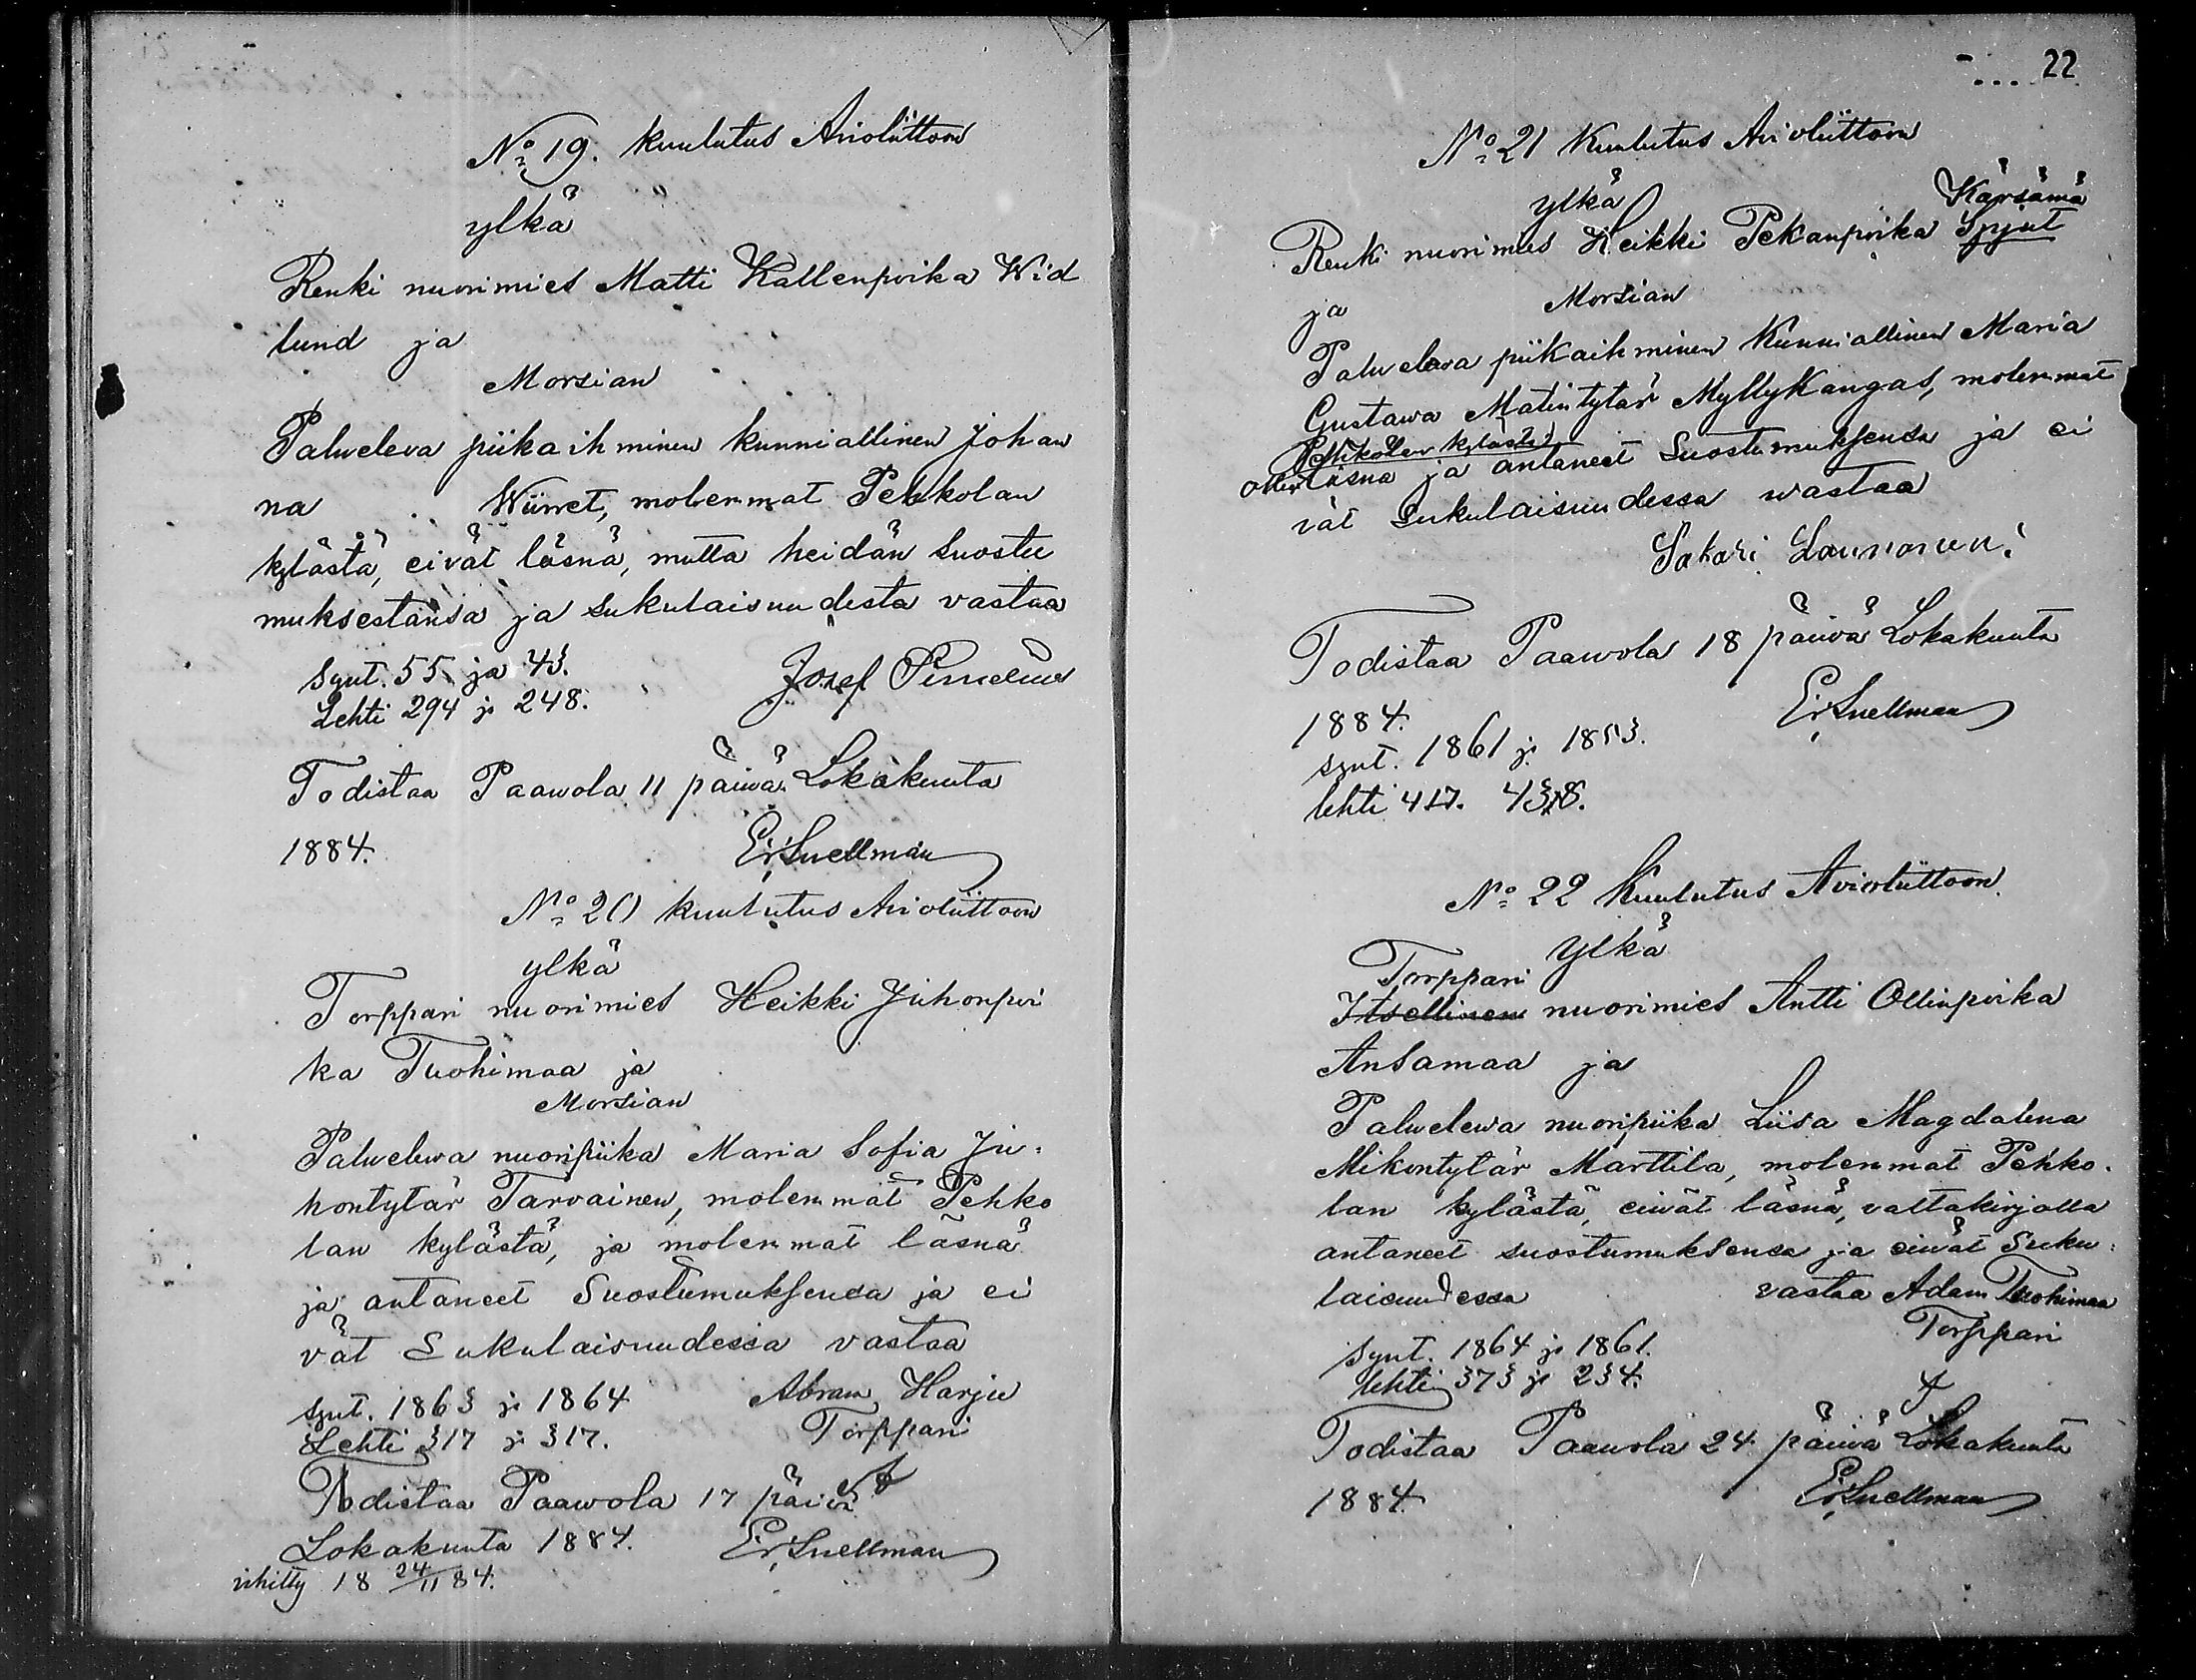 No 19. Kuulutus Avioliittoon
ylkä
Renki nuorimies Matti Kallenpoika Wid
lund ja
Morsian
Palveleva piikaihminen kunniallinen Johan
na Wiirret, molemmat Pehkolan
kylästä, eivät läsnä, mutta heidän suostu
muksestansa ja sukulaisuudesta vastaa
synt. 55 ja 43.
Josef
Lehti 294 ja 248.
Todistaa Paawola 11 päivä Lokakuuta
1884.
Er. Snellman
No 20 kuulutus Avioliittoon
ylkä
Torppari nuorimies Heikki Juhonpoi
ka Tuohimaa ja
Morsian
Palvelewa nuoripiika Maria Sofia Ju-
hontytär Tarvainen, molemmat Pehko
lan kylästä, ja molemmat läsnä
ja antaneet Suostumuksensa ja ei
vät Sukulaisuudessa vastaa
synt. 1863 ja 1864
Abram Harju
Lehti 317 ja 317.
Torppari
Todistaa Paawola 17 päivä
Lokakuuta 1884.
Er. Snellman
vihitty 18 24/11 84.
22
No 21 Kuulutus Avioliittoon
ylkä
Kärsämä
Renki nuorimies Heikki Pekanpoika Spjut
ja Morsian
Palveleva piikaihminen Kunniallinen Maria
Gustawa Matintytär Myllykangas, molemmat
Pehkolan kylästä
ollen läsnä ja antaneet Suostumuksensa ja ei
vät Sukulaisuudessa wastaa
Sakari Launonen.
Todistaa Paawola 18 päivä Lokakuuta
1884.
Er. Snellman
synt. 1861 ja 1853.
lehti 417. 438.
No 22 Kuulutus Avioliittoon
ylkä
Torppari
Itsellinen nuorimies Antti Ollinpoika
Ansamaa ja
Palvelewa nuoripiika Liisa Magdalena
Mikontytär Marttila, molemmat Pehko-
lan kylästä, eiwät läsnä, valtakirjalla
antaneet suostumuksensa ja eiwät Suku-
laisuudessa vastaa Adam Tuohimaa
Torppari
synt. 1864 ja 1861.
lehti 373 ja 234.
Todistaa Paawola 24 päiwä Lokakuuta
1884
Er. Snellman